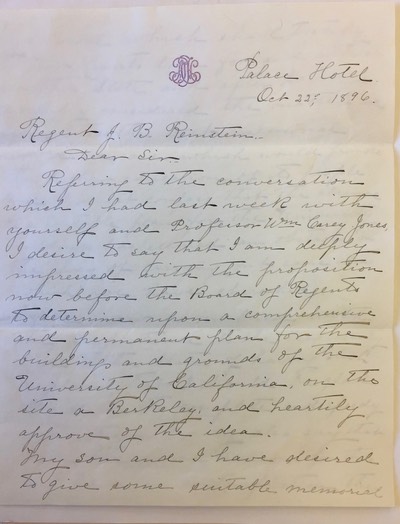 Palace Hotel
Oct 22d, 1896.
Regent J. B. Reinstein.
Dear Sir
Referring to the conversation
which I had last week with
yourself and Professor Wm Carey Jones,
I desire to say that I am deeply
impressed with the proposition
now before the Board of Regents
to determine upon a comprehensive
and permanent plan for the
buildings and grounds of the
University of California, on the
site a Berkeley, and heartily
approve of the idea.
My son and I have desired
to give some suitable memorial